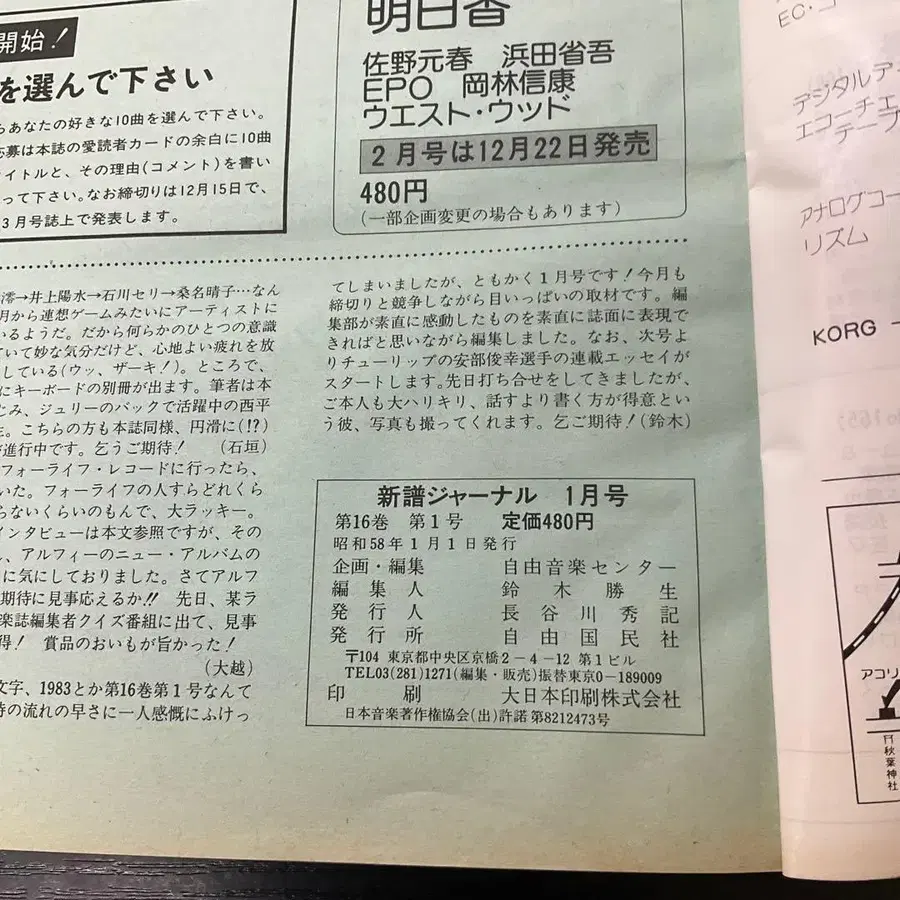 開始!
を選んで下さい
らあなたの好きな10曲を選んで下さい。
応募は本誌の愛読者カードの余白に10曲
タイトルと、その理由(コメント)を書い
って下さい。なお締切りは12月15日で、
3月号誌上で発表します。
明日香
佐野元春 浜田省吾
EPO 岡林信康
ウエスト・ウッド
2月号は12月22日発売
480円
(一部企画変更の場合もあります)
澪→井上陽水→石川セリ→桑名晴子…なん
月から連想ゲームみたいにアーティストに
いるようだ。だから何らかのひとつの意識
ていて妙な気分だけど、心地よい疲れを放
している(ウッ、ザーキ!)。ところで、
にキーボードの別冊が出ます。筆者は本
じみ、ジュリーのバックで活躍中の西平
生。こちらの方も本誌同様、円滑に(!?)
が進行中です。乞うご期待! (石垣)
フォーライフ・レコードに行ったら、
いた。フォーライフの人すらどれくら
らないくらいのもんで、大ラッキー。
インタビューは本文参照ですが、その
し、アルフィーのニュー・アルバムの
に気にしておりました。さてアルフ
期待に見事応えるか!! 先日、某ラ
楽誌編集者クイズ番組に出て、見事
得! 賞品のおいもが旨かった!
(大越)
文字、1983とか第16巻第1号なんて
時の流れの早さに一人感慨にふけっ
てしまいましたが、ともかく1月号です!今月も
締切りと競争しながら目いっぱいの取材です。編
集部が素直に感動したものを素直に誌面に表現で
きればと思いながら編集しました。なお、次号よ
りチューリップの安部俊幸選手の連載エッセイが
スタートします。先日打ち合せをしてきましたが、
ご本人も大ハリキリ、話すより書く方が得意とい
う彼、写真も撮ってくれます。乞ご期待!(鈴木)
新譜ジャーナル 1月号
第16巻 第1号 定価480円
昭和58年1月1日発行
企画・編集 自由音楽センター
編集人 鈴木勝生
発行人 長谷川秀記
発行所 自由国民社
〒104 東京都中央区京橋2-4-12 第1ビル
TEL03(281)1271(編集・販売)振替東京0-189009
印刷 大日本印刷株式会社
日本音楽著作権協会(出)許諾第8212473号
デジタルデ
エコーチェ
テープ
アナログコー
リズム
KORG
アコリ
秋葉神社